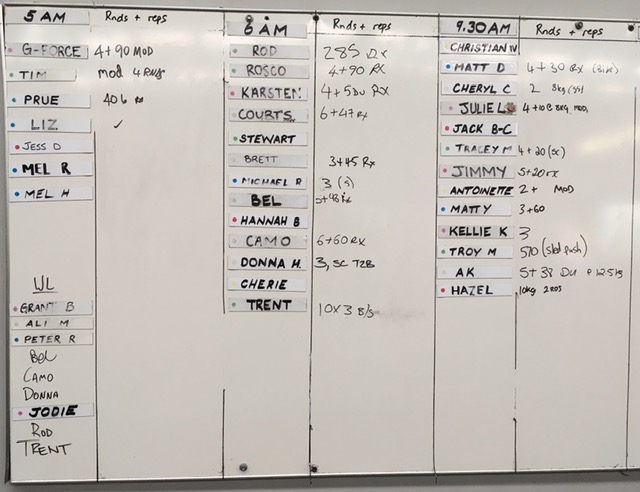 5 AM Rnds + reps
G-FORCE 4+90 MOD
TIM mod 4 RNDS
PRUE
LIZ ✓
JESS D
MEL R
MEL H
WL
GRANT B
ALI M
PETER R
BEL
CAMO
DONNA
JODIE
ROD
TRENT
6 AM Rnds + reps
ROD 285 Rx
ROSCO 4+90 RX
KARSTEN 4+5DU RX
COURTS 6+47 Rx
STEWART
BRETT 3+45 Rx
MICHAEL R 3 (S)
BEL
HANNAH B
CAMO 6+60 RX
DONNA H. 3, SC T2B
CHERIE
TRENT 10x3 B/S
9.30AM Rnds + reps
CHRISTIAN W
MATT D 4+30 Rx (Bike)
CHERYL C 2 8kg
JULIE L 4+10 @ 8kg MOD.
JACK B-C
TRACEY M 4+20 (sc)
JIMMY 5+20 rx
ANTOINETTE 2+ MOD
MATTY 3+60
KELLIE K 3
TROY M (sled push)
AK 5+38 DU @ 12.5kg
HAZEL 10kg 2 RDS